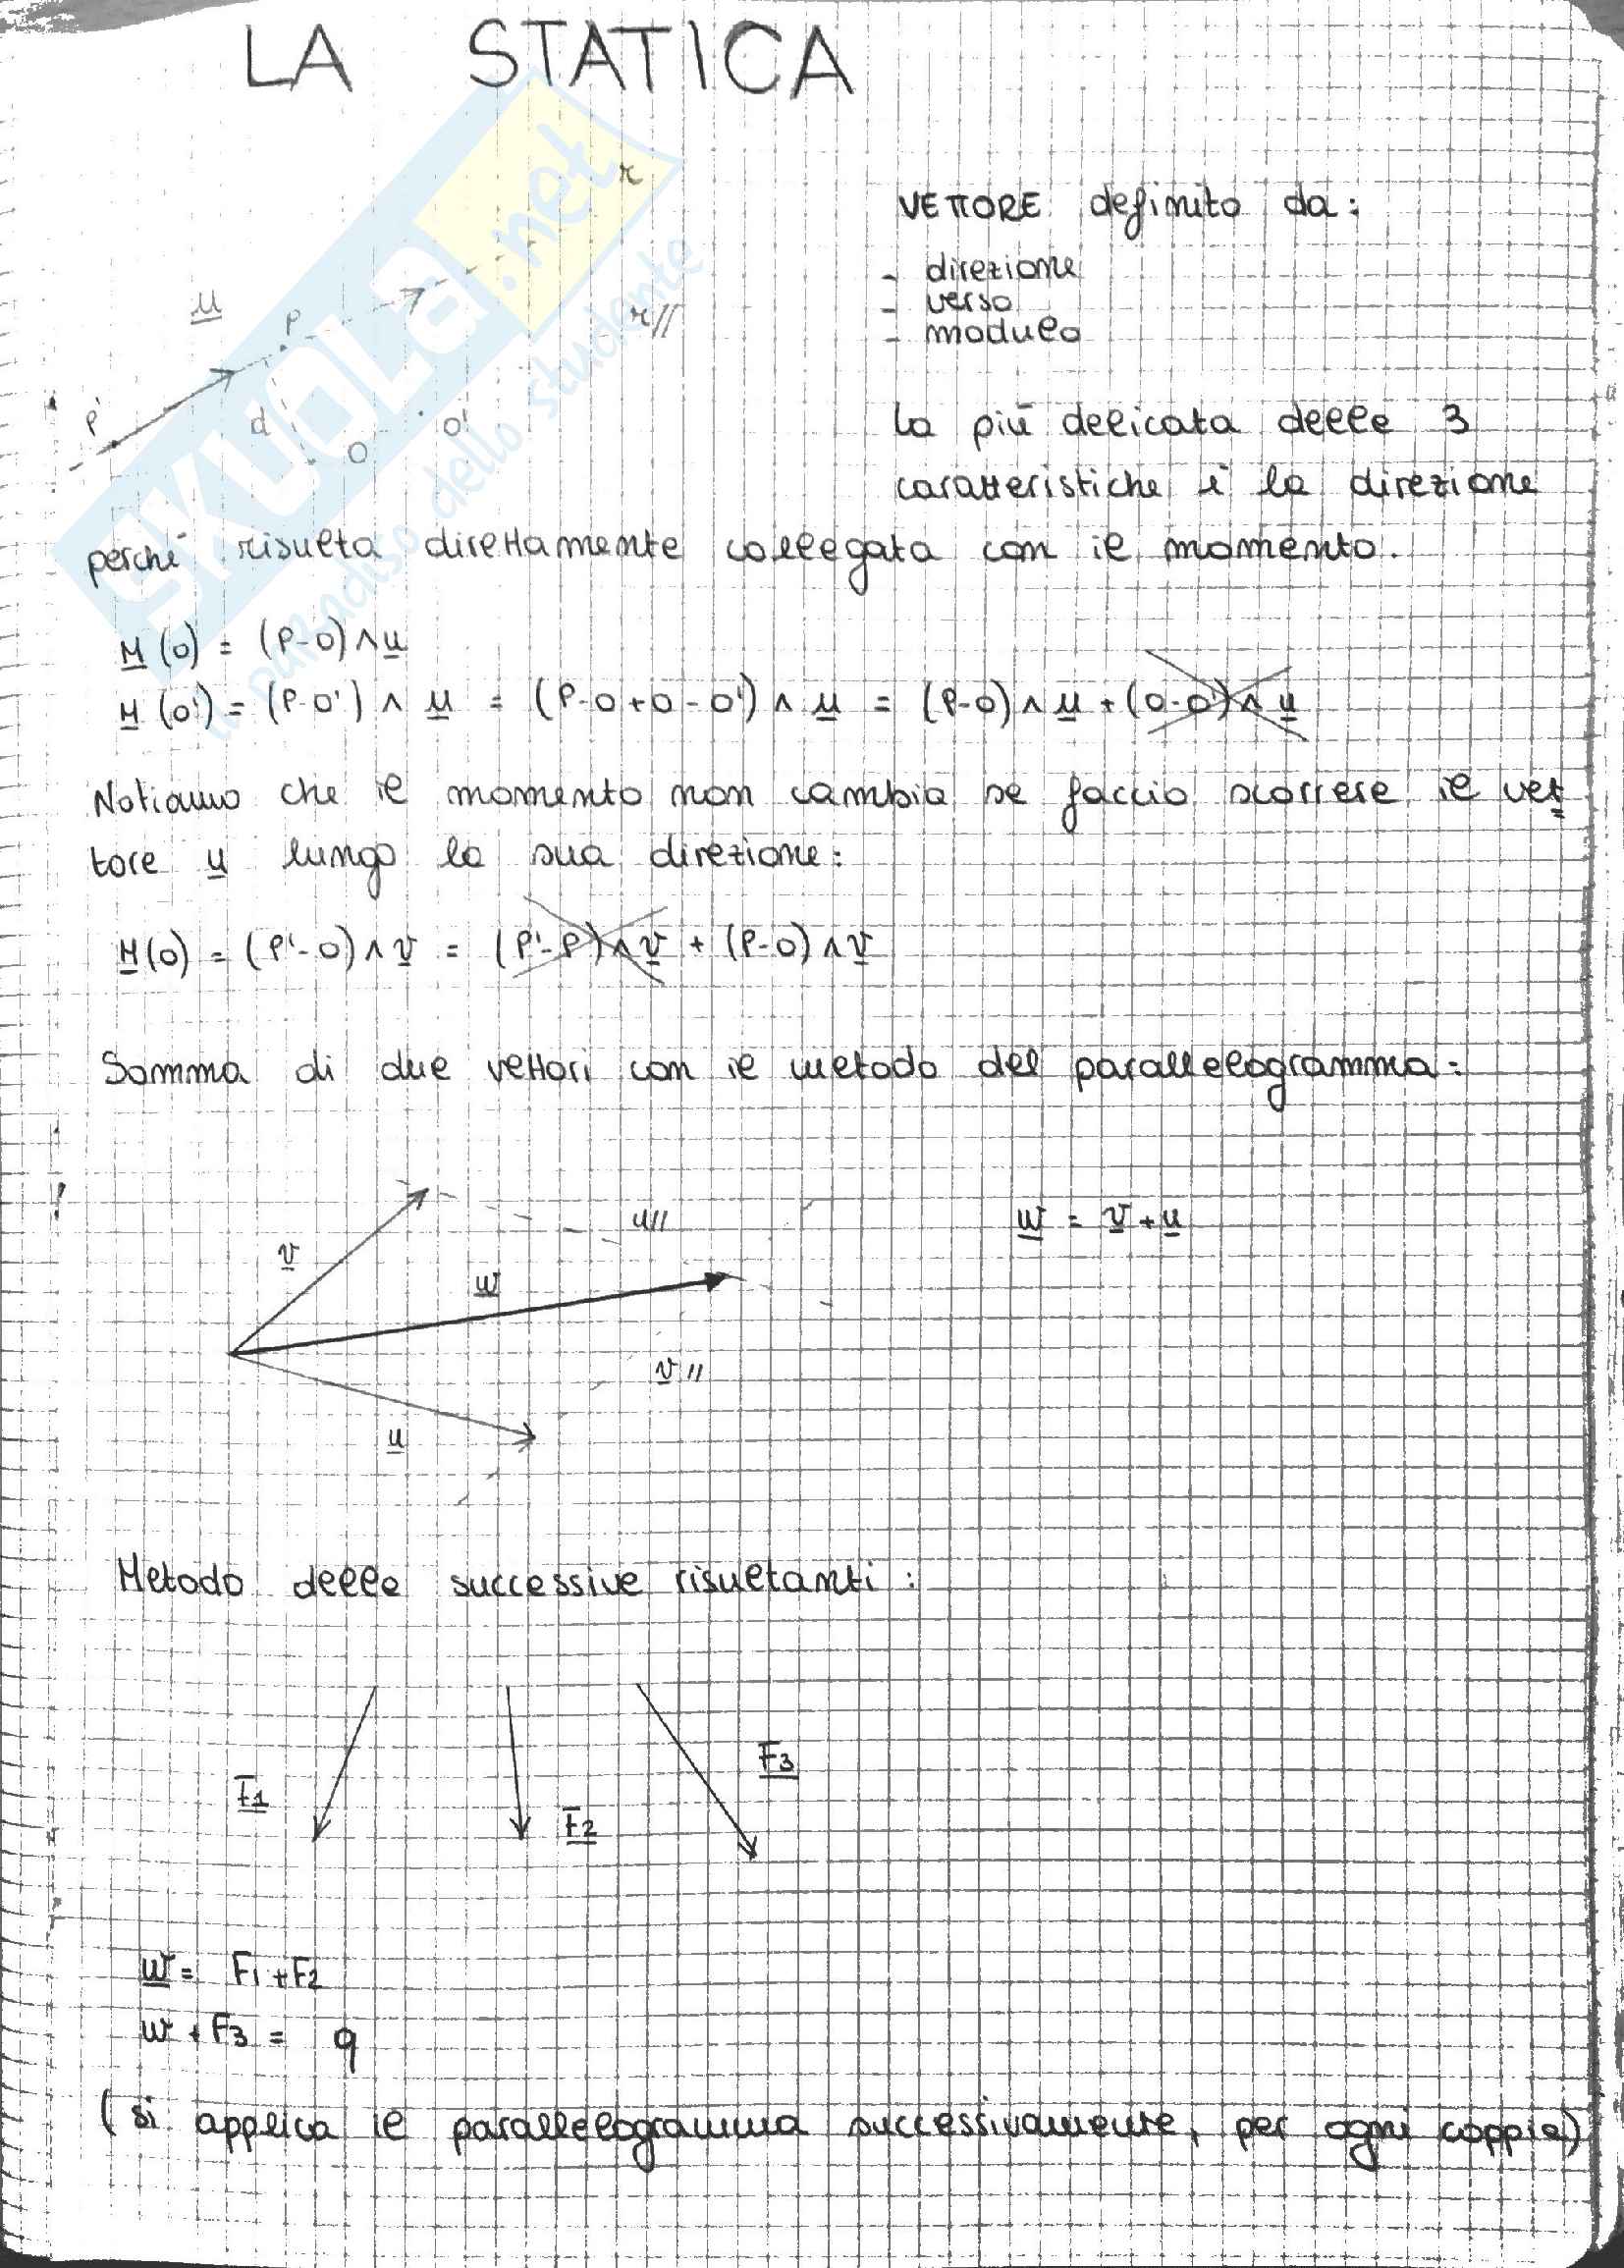 LA STATICA
r
VETTORE definito da:
u
P
- direzione
- verso
- modulo
r//
P'
d
O
O'
La più delicata delle 3
caratteristiche è la direzione
perché risulta direttamente collegata con il momento.
M(O) = (P-O)∧u
M(O') = (P-O')∧u = (P-O+O-O')∧u = (P-O)∧u + (O-O')∧u
Notiamo che il momento non cambia se faccio scorrere il vet
tore u lungo la sua direzione:
M(O) = (P'-O)∧v = (P'-P)∧v + (P-O)∧v
Somma di due vettori con il metodo del parallelogramma:
u//
w = v+u
v
w
v//
u
Metodo delle successive risultanti:
F3
F1
F2
w = F1+F2
w + F3 = q
(si applica il parallelogramma successivamente, per ogni coppia)
SKUOLA.net
il paradiso dello studente